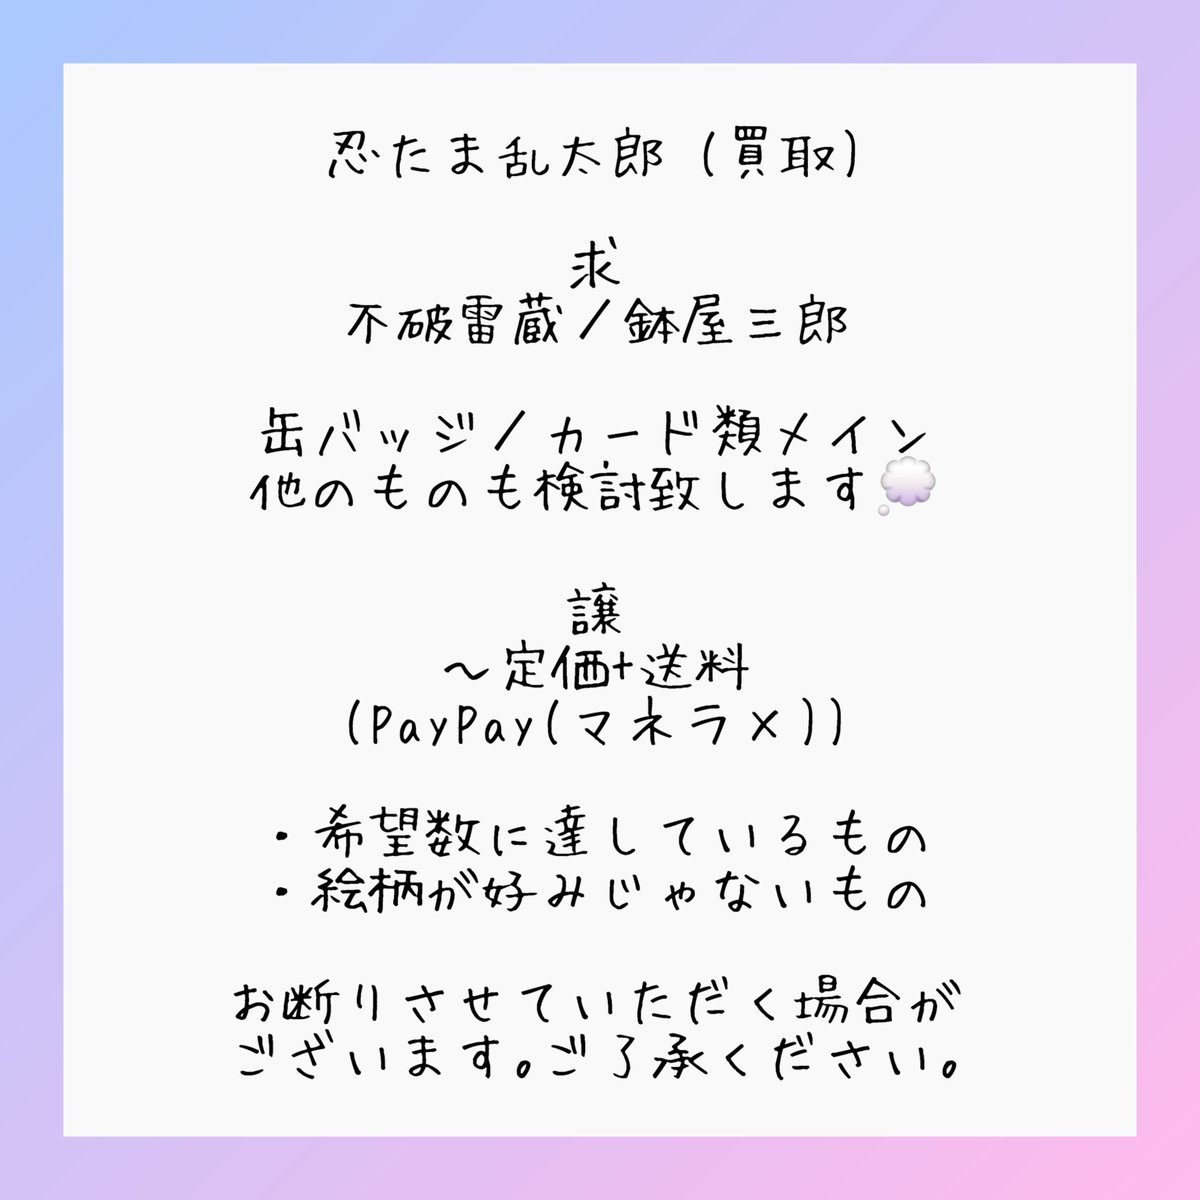 忍たま乱太郎（買取）
求
不破雷蔵／鉢屋三郎
缶バッジ／カード類メイン
他のものも検討致します💭
譲
〜定価+送料
(PayPay(マネラ×))
・希望数に達しているもの
・絵柄が好みじゃないもの
お断りさせていただく場合が
ございます。ご了承ください。